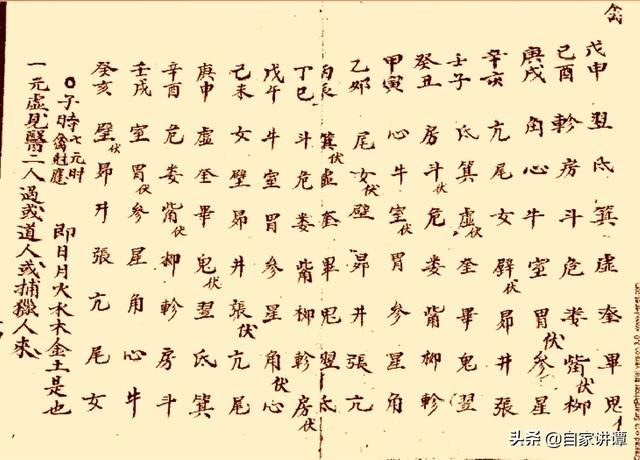 禽
戊申 翌 氐 箕 虛 奎 畢 鬼
己酉 軫 房 斗 危 婁 觜伏 柳
庚戌 角 心 牛 室 胃伏 參 星
辛亥 亢 尾 女 壁伏 昴 井 張
壬子 氐 箕 虛伏 奎 畢 鬼 翌
癸丑 房 斗伏 危 婁 觜 柳 軫
甲寅 心 牛 室伏 胃 參 星 角
乙卯 尾 女伏 壁 昴 井 張 亢
丙辰 箕伏 虛 奎 畢 鬼 翌 氐
丁巳 斗 危 婁 觜 柳 軫 房伏
戊午 牛 室 胃 參 星 角伏 心
己未 女 壁 昴 井 張伏 亢 尾
庚申 虛 奎 畢 鬼伏 翌 氐 箕
辛酉 危 婁 觜伏 柳 軫 房 斗
壬戌 室 胃伏 參 星 角 心 牛
癸亥 壁伏 昴 井 張 亢 尾 女
○子時 七元时禽應 即日月火水木金土是也
一元虛見醫二人過或道人或捕獵人來
头条 @自家讲谭